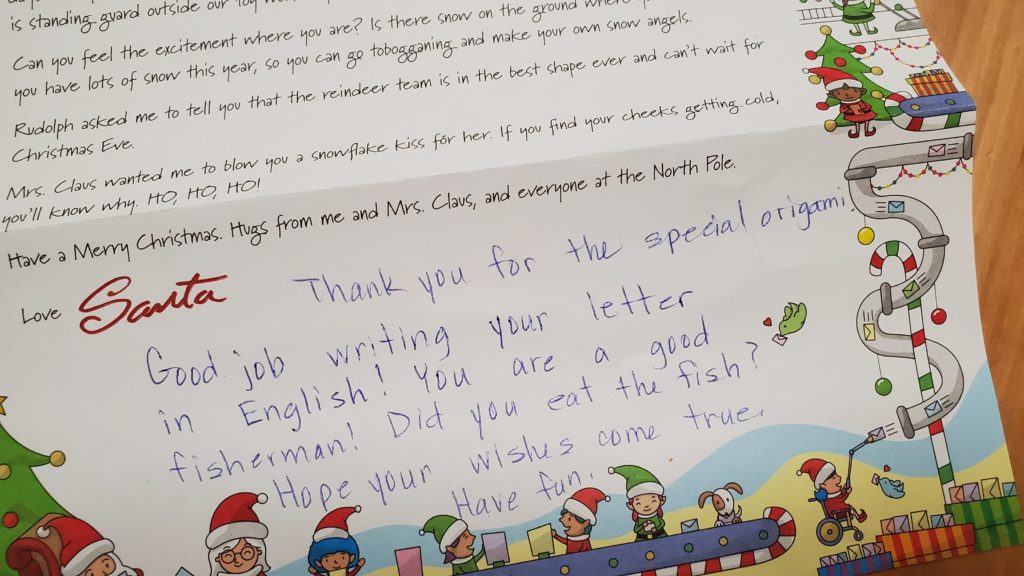 is standing guard outside our
Can you feel the excitement where you are? Is there snow on the ground where
you have lots of snow this year, so you can go tobogganing and make your own snow angels.
Rudolph asked me to tell you that the reindeer team is in the best shape ever and can't wait for
Christmas Eve.
Mrs. Claus wanted me to blow you a snowflake kiss for her. If you find your cheeks getting cold,
you'll know why. HO, HO, HO!
Have a Merry Christmas. Hugs from me and Mrs. Claus, and everyone at the North Pole.
Love Santa
Thank you for the special origami!
Good job writing your letter
in English! You are a good
fisherman! Did you eat the fish?
Hope your wishes come true.
Have fun.